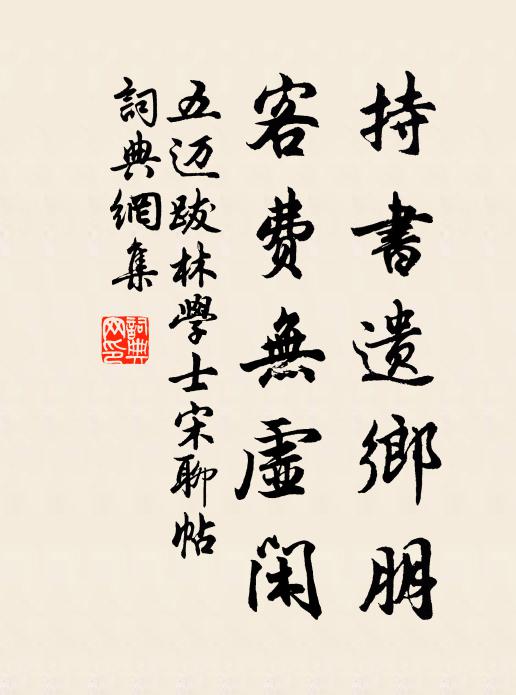 持書遺鄉朋
客費無虛閑
五迈跋林學士宋聊帖
詞典網集
詞典
网印